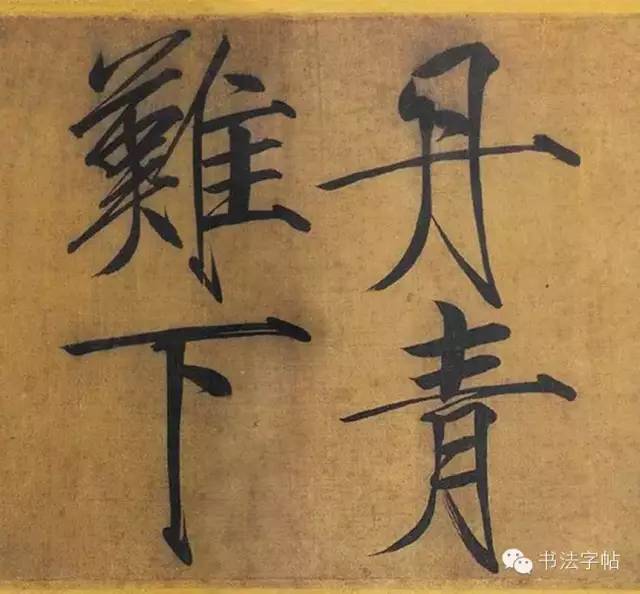 丹青
難下
书法字帖